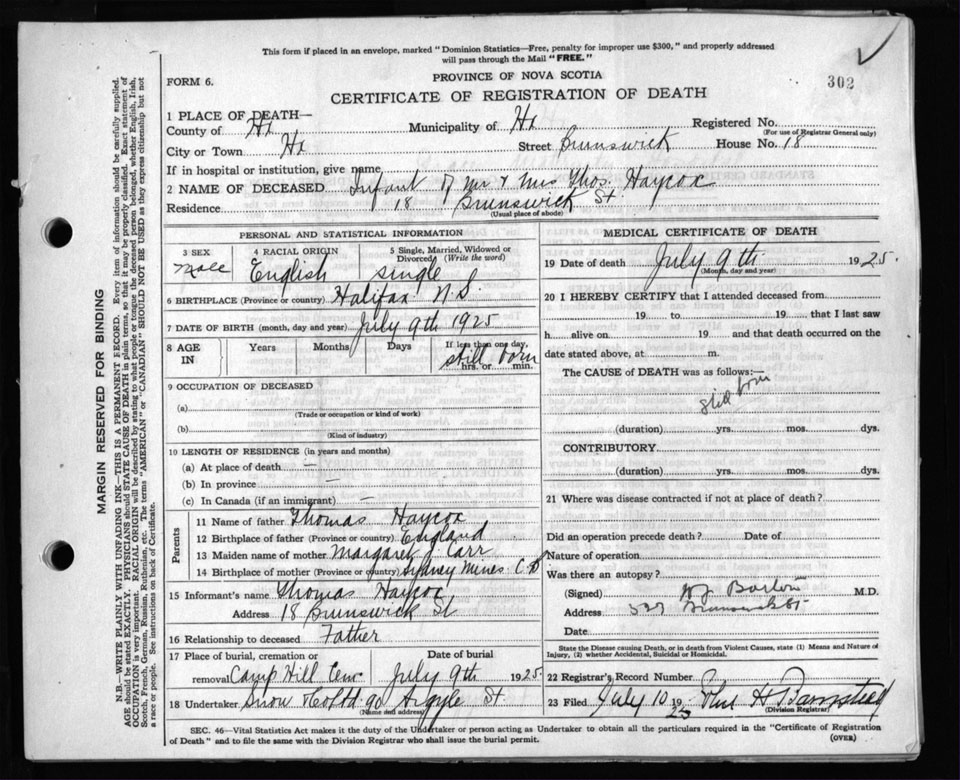 This form if placed in an envelope, marked "Dominion Statistics—Free, penalty for improper use $300," and properly addressed
will pass through the Mail "FREE."
302
FORM 6.
PROVINCE OF NOVA SCOTIA
CERTIFICATE OF REGISTRATION OF DEATH
1 PLACE OF DEATH—
County of Hx Municipality of Hx Registered No.
(For use of Registrar General only)
City or Town Hx Street Brunswick House No. 18
If in hospital or institution, give name
2 NAME OF DECEASED Infant of Mr & Mrs Thos. Haycox
Residence 18 Brunswick St.
(Usual place of abode)
PERSONAL AND STATISTICAL INFORMATION
3 SEX 4 RACIAL ORIGIN 5 Single, Married, Widowed or
Divorced (Write the word)
Male English single
6 BIRTHPLACE (Province or country) Halifax N.S.
7 DATE OF BIRTH (month, day and year) July 9th 1925
8 AGE IN Years Months Days If less than one day,
still born
hrs. or min.
9 OCCUPATION OF DECEASED
(a)
(Trade or occupation or kind of work)
(b)
(Kind of industry)
10 LENGTH OF RESIDENCE (in years and months)
(a) At place of death —
(b) In province —
(c) In Canada (if an immigrant) —
Parents
11 Name of father Thomas Haycox
12 Birthplace of father (Province or country) England
13 Maiden name of mother Margaret J. Carr
14 Birthplace of mother (Province or country) Sydney Mines C.B
15 Informant's name Thomas Haycox
Address 18 Brunswick St
16 Relationship to deceased Father
17 Place of burial, cremation or Date of burial
removal Camp Hill Cem July 9th 1925
18 Undertaker Snow & Co Ltd 90 Argyle St
(Name and address)
MEDICAL CERTIFICATE OF DEATH
19 Date of death July 9th 1925.
(Month, day and year)
20 I HEREBY CERTIFY that I attended deceased from
19 to 19 that I last saw
h alive on 19 and that death occurred on the
date stated above, at m.
The CAUSE of DEATH was as follows:—
still born
(duration) yrs. mos. dys.
CONTRIBUTORY
(duration) yrs. mos. dys.
21 Where was disease contracted if not at place of death?
Did an operation precede death? Date of
Nature of operation
Was there an autopsy?
(Signed) Barton M.D.
Address 527 Brunswick St
Date
State the Disease causing Death, or in death from Violent Causes, state (1) Means and Nature of
Injury, (2) whether Accidental, Suicidal or Homicidal.
22 Registrar's Record Number
23 Filed July 10 1925
(Division Registrar)
SEC. 46—Vital Statistics Act makes it the duty of the Undertaker or person acting as Undertaker to obtain all the particulars required in the "Certificate of Registration
of Death" and to file the same with the Division Registrar who shall issue the burial permit.
(OVER)
MARGIN RESERVED FOR BINDING
N.B.—WRITE PLAINLY WITH UNFADING INK—THIS IS A PERMANENT RECORD. Every item of information should be carefully supplied.
AGE should be stated EXACTLY. PHYSICIANS should STATE CAUSE OF DEATH in plain terms, so that it may be properly classified. Exact statement of
OCCUPATION is very important. RACIAL ORIGIN will be described by stating to what people or tongue the deceased person belonged, whether English, Irish,
Scotch, French, German, Russian, Ruthenian, etc. The terms "AMERICAN" or "CANADIAN" SHOULD NOT BE USED as they express citizenship but not
a race or people. See instructions on back of Certificate.